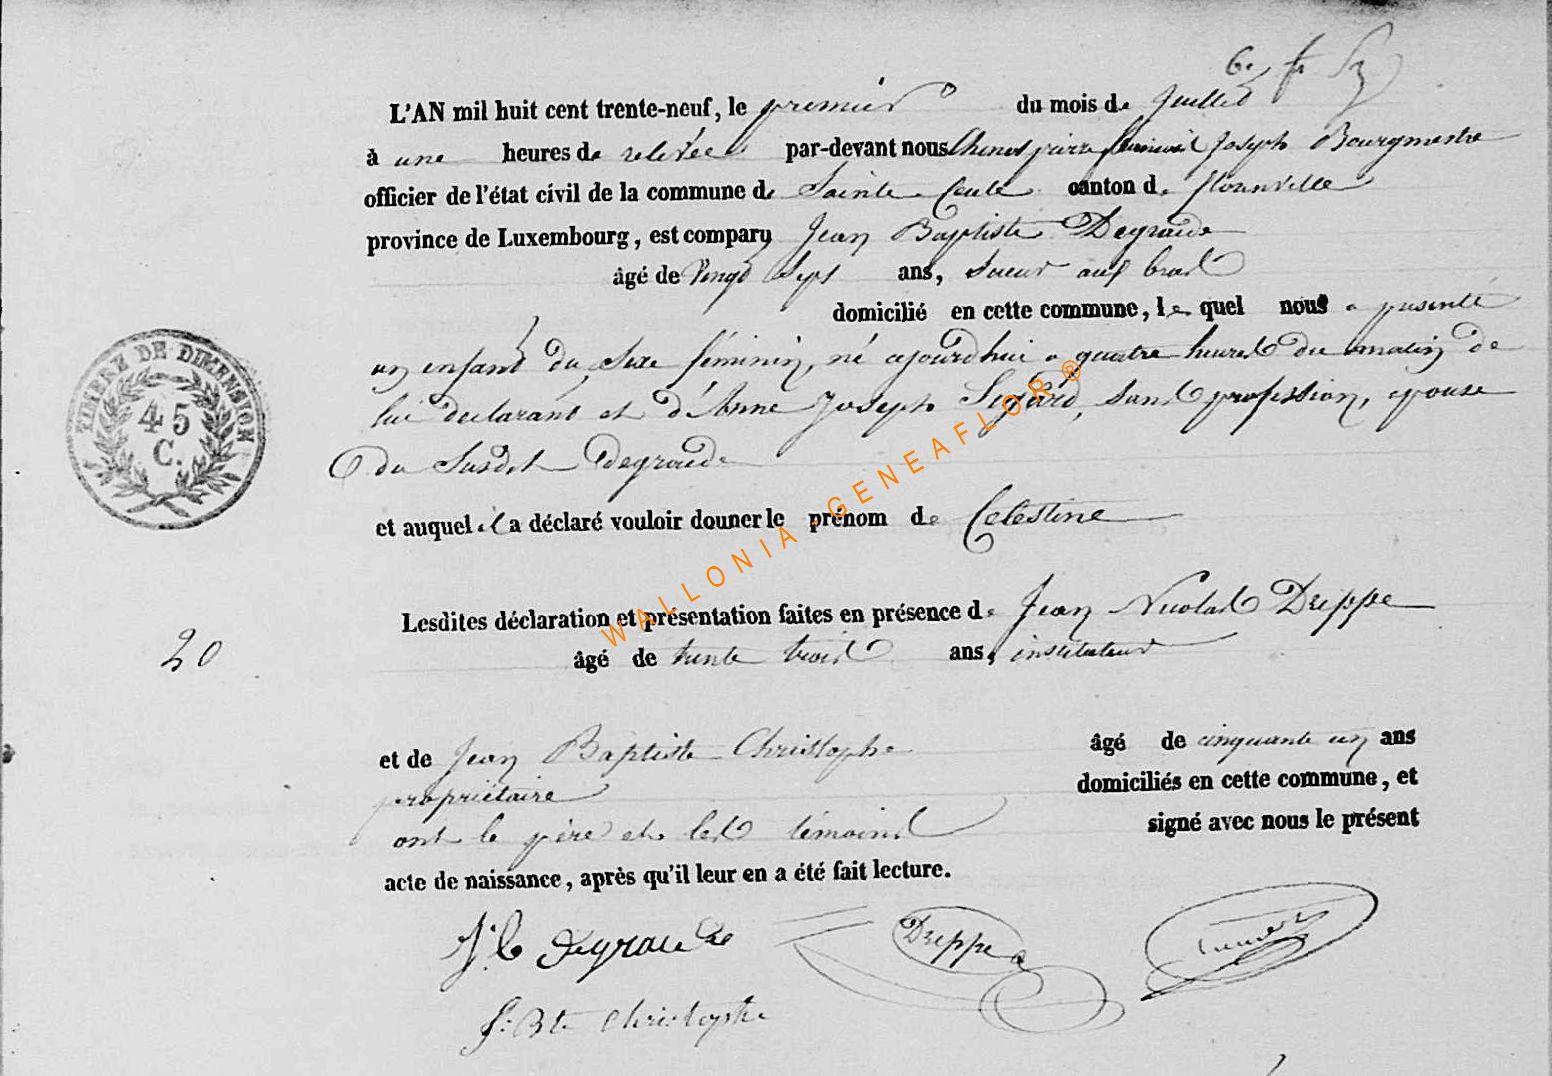 L'AN mil huit cent trente-neuf, le premier du mois de Juillet
à une heures de relevée par-devant nous pierre Joseph Bourgmestre
officier de l'état civil de la commune de Sainte Cecile canton de florenville
province de Luxembourg, est comparu Jean Baptiste Degraide
âgé de Vingt Sept ans, Sieur aux bras
domicilié en cette commune, lequel nous a presenté
un enfant du Sexe féminin, né ajourdhui a quatre heures du matin de
lui declarant et d'Anne Joseph Sans profession, epouse
du Susdit Degraide
et auquel il a déclaré vouloir donner le prénom de Celestine
Lesdites déclaration et présentation faites en présence de Jean Nicolas Dreppe
20
âgé de trente trois ans, instituteur
et de Jean Baptiste Christophe âgé de cinquante un ans
propriétaire domiciliés en cette commune, et
ont le père et les témoins signé avec nous le présent
acte de naissance, après qu'il leur en a été fait lecture.
J.B Degraide Dreppe
J. Bte Christophe
TIMBRE DE DIMENSION
45
C.
WALLONIA - GENEAFLOR®